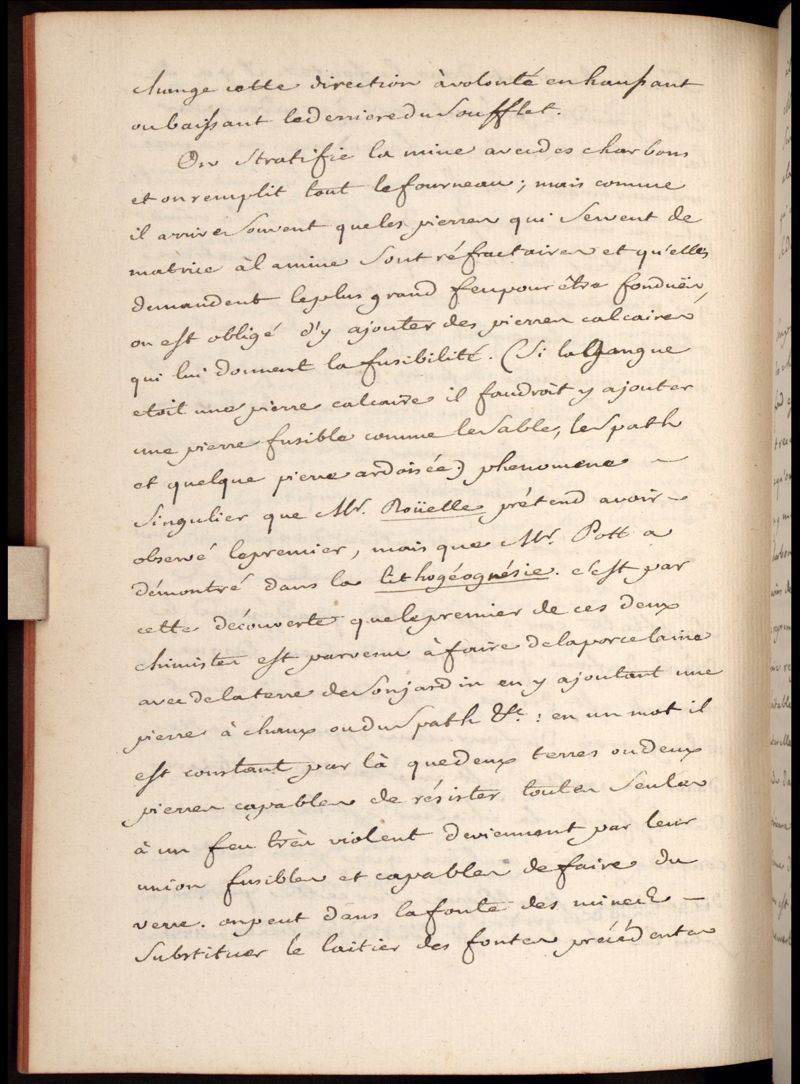 change cette direction à volonté en haussant
ou baissant le derriere du Soufflet.
On Stratifie la mine avec des charbons
et on remplit tout le fourneau ; mais comme
il arrive Souvent que les pierres qui Servent de
matrice à la mine Sont réfractaires et qu'elles
demandent le plus grand feu pour être fonduës,
on est obligé d'y ajouter des pierres calcaires
qui lui donnent la fusibilité. (Si la Gangue
etoit une pierre calcaire il faudroit y ajouter
une pierre fusible comme le Sable, le Spath
et quelque pierre ardoisée) phenomene –
Singulier que Mr. Roüelle prétend avoir –
observé le premier, mais que Mr. Pott a
démontré dans la lithogéognésie. c'est par
cette découverte que le premier de ces deux
chimistes est parvenu à faire de la porcelaine
avec de la terre de Son jardin en y ajoutant une
pierre à chaux ou du Spath &c. : en un mot il
est constant par là que deux terres ou deux
pierres capables de résister toutes Seules
à un feu très violent deviennent par leur
union fusibles et capables de faire du
verre. on peut dans la fonte des mines –
Substituer le laitier des fontes précédentes